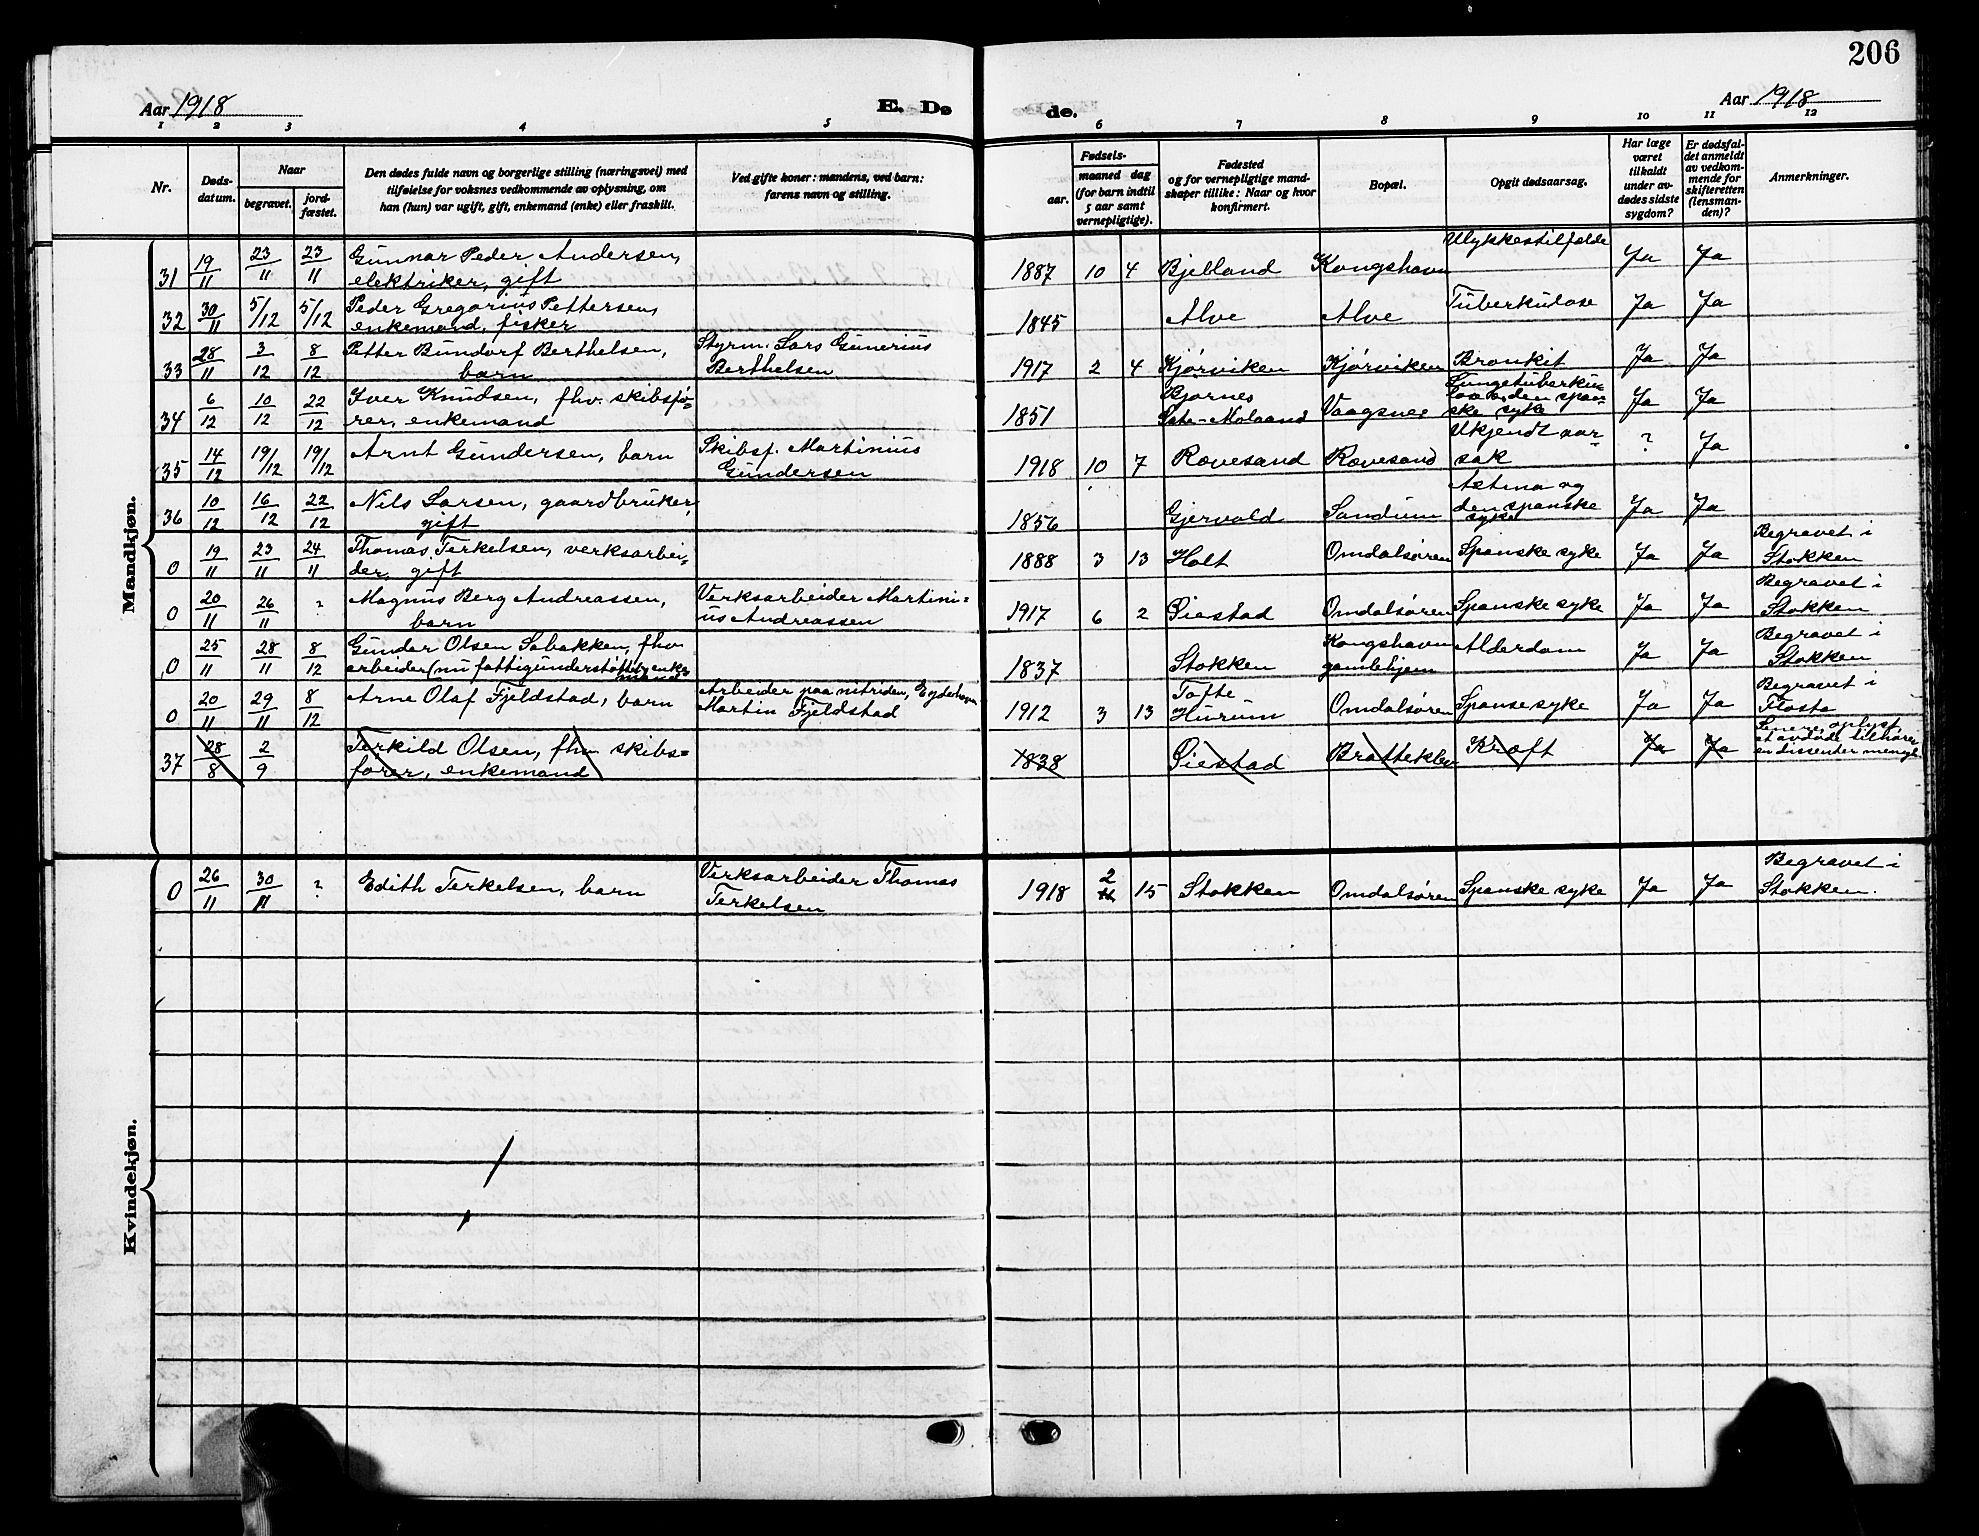 206
Aar 1918
E. Dø
de.
Aar 1918
1 2 3 4 5 6 7 8 9 10 11 12
Nr.
Døds-
datum.
Naar
begravet.
jord-
fæstet.
Den dødes fulde navn og borgerlige stilling (næringsvei) med
tilføielse for voksnes vedkommende av oplysning, om
han (hun) var ugift, gift, enkemand (enke) eller fraskilt.
Ved gifte koner: mandens, ved barn:
farens navn og stilling.
Fødsels-
aar. maaned dag
(for barn indtil
5 aar samt
vernepligtige).
Fødested
og for vernepligtige mand-
skaper tillike: Naar og hvor
konfirmert.
Bopæl.
Opgit dødsaarsag.
Har læge
været
tilkaldt
under av-
dødes sidste
sygdom?
Er dødsfal-
det anmeldt
av vedkom-
mende for
skifteretten
(lensman-
den)?
Anmerkninger.
Mandkjøn.
31 19/11 23/11 23/11 Gunnar Peder Andersen,
elektriker, gift
1887 10 4 Bjelland Kongshavn Ulykkestilfelde Ja Ja
32 30/11 5/12 5/12 Peder Gregorius Pettersen,
enkemand, fisker
1845 Alve Alve Tuberkulose Ja Ja
33 28/11 3/12 8/12 Petter Bundorf Berthelsen,
barn
Styrm. Lars Gunerius
Berthelsen
1917 2 4 Kjørviken Kjørviken Bronkit Ja Ja
34 6/12 10/12 22/12 Iver Knudsen, fhv. skibsfø-
rer, enkemand
1851 Bjornes
Sata-Molaand Vaagsnes Lungetuberku-
lose den span-
ske syke Ja Ja
35 14/12 19/12 19/12 Arnt Gundersen, barn
Skibsf. Martinius
Gundersen
1918 10 7 Rævesand Rævesand Ukjendt aar-
sak ? Ja
36 10/12 16/12 22/12 Nils Larsen, gaardbruker,
gift
1856 Gjervold Sandum Astma og
den spanske
syke Ja Ja
0 19/11 23/11 24/11 Thomas Terkelsen, verksarbei-
der, gift
1888 3 13 Holt Omdalsøren Spanske syke Ja Ja Begravet i
Stokken
0 20/11 26/11 ? Magnus Berg Andreassen,
barn
Verksarbeider Martini-
us Andreassen
1917 6 2 Øiestad Omdalsøren Spanske syke Ja Ja Begravet i
Stokken
0 25/11 28/11 8/12 Gunder Olsen Sebakken, fhv.
arbeider (nu fattigunderstøttet) enke-
mand
1837 Stokken Kongshavn
gamlehjem Alderdom Ja Ja Begravet i
Stokken
0 20/11 29/11 8/12 Arne Olaf Fjeldstad, barn
Arbeider paa nitriden, Eydehavn
Martin Fjeldstad
1912 3 13 Tofte
Hurum Omdalsøren Spanse syke Ja Ja Begravet i
Flosta
37 28/8 2/9 Terkild Olsen, fhv. skibs-
fører, enkemand
1838 Øiestad Bratteklev Kræft Ja Ja Senere oplyst
at avdøde tilhører
en dissenter menigh.
Kvindekjøn.
0 26/11 30/11 ? Edith Terkelsen, barn
Verksarbeider Thomas
Terkelsen
1918 2 15 Stokken Omdalsøren Spanske syke Ja Ja Begravet i
Stokken.